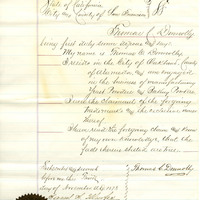 State of California
City and County of San Francisco } SS
Thomas C. Donnolly
being first duly sworn deposes and says
My name is Thomas C. Donnolly
I reside in the City of Oakland, County
of Alameda, and am engaged
in the business of manufacturing
Yeast Powders and Baking Powders
I read the statement of the foregoing
Instrument and the
thereof
I have read the foregoing and know
of my own knowledge, that the
facts therein stated are true
Subscribed and sworn to
before me this
day of November
Thomas C. Donnolly